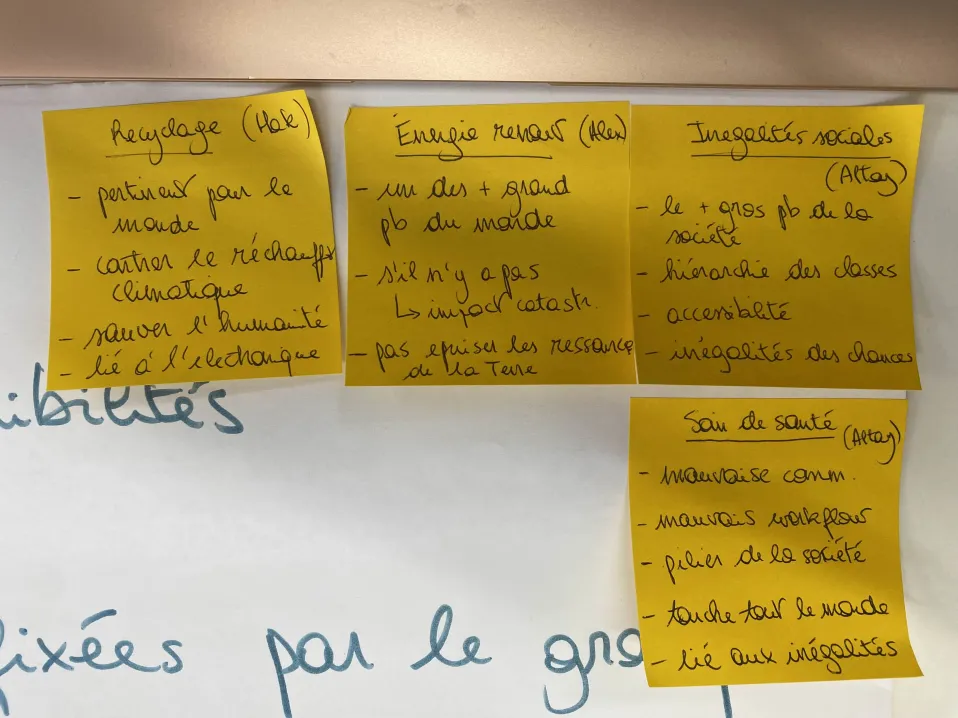 Recyclage (Hak)
- pertinent pour le
monde
- contrer le réchauff
climatique
- sauver l'humanité
- lié à l'électronique
Énergie renouv (Alex)
- un des + grand
pb du monde
- s'il n'y a pas
↳ impact catastr.
- pas epuiser les ressources
de la Terre
Inegalités sociales
(Altay)
- le + gros pb de la
société
- hiérarchie des classes
- accessiblité
- inégalités des chances
Soin de santé
(Altay)
- mauvaise comm.
- mauvais workflow
- pilier de la société
- touche tout le monde
- lié aux inégalités
ibilités
fixées par le gro